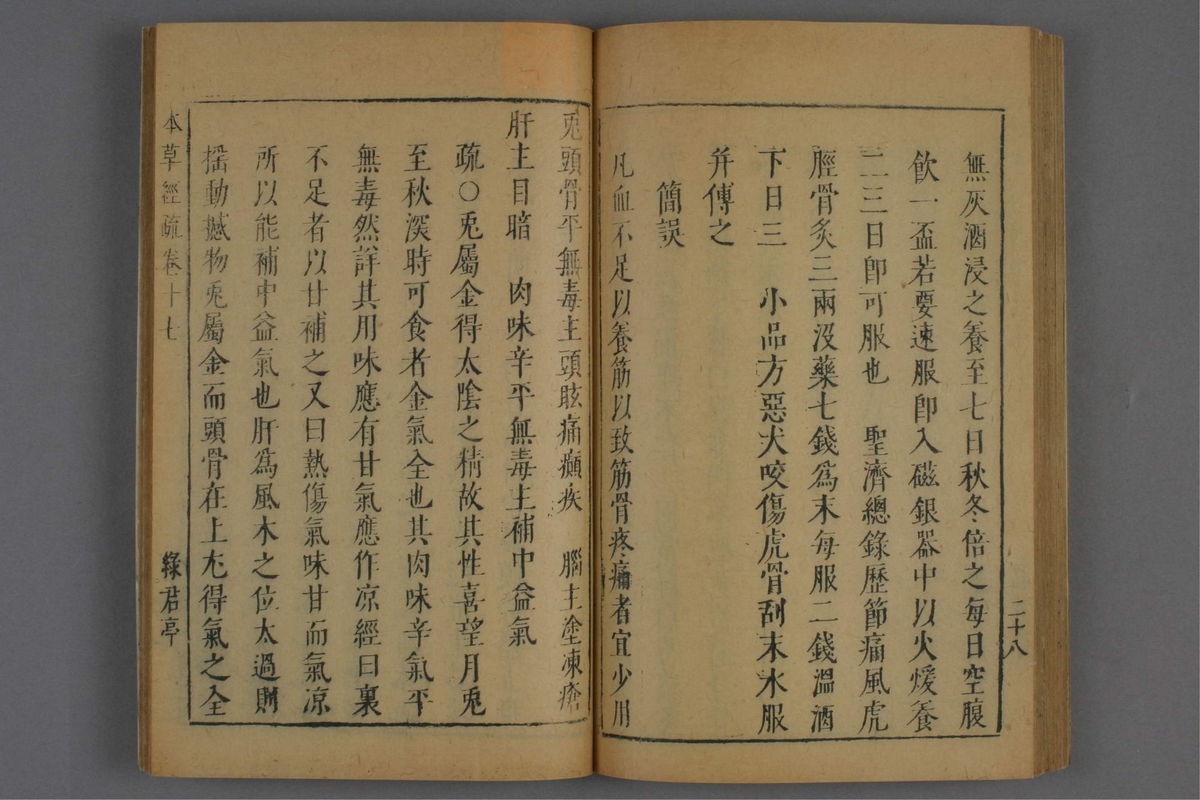 無灰酒浸之養至七日秋冬倍之每日空腹
飲一盃若要速服卽入磁銀器中以火煖養
二三日卽可服也　聖濟總錄歷節痛風虎
脛骨炙三兩沒藥七錢爲末每服二錢溫酒
下日三　小品方惡犬咬傷虎骨刮末水服
幷傅之
簡誤
凡血不足以養筋以致筋骨疼痛者宜少用
二十八
兎頭骨平無毒主頭眩痛癲疾　腦主塗凍瘡
肝主目暗　肉味辛平無毒主補中益氣
疏○兎屬金得太陰之精故其性喜望月兎
至秋深時可食者金氣全也其肉味辛氣平
無毒然詳其用味應有甘氣應作凉經曰裏
不足者以甘補之又曰熱傷氣味甘而氣凉
所以能補中益氣也肝爲風木之位太過則
搖動撼物兎屬金而頭骨在上尤得氣之全
本草經疏卷十七
綠君亭